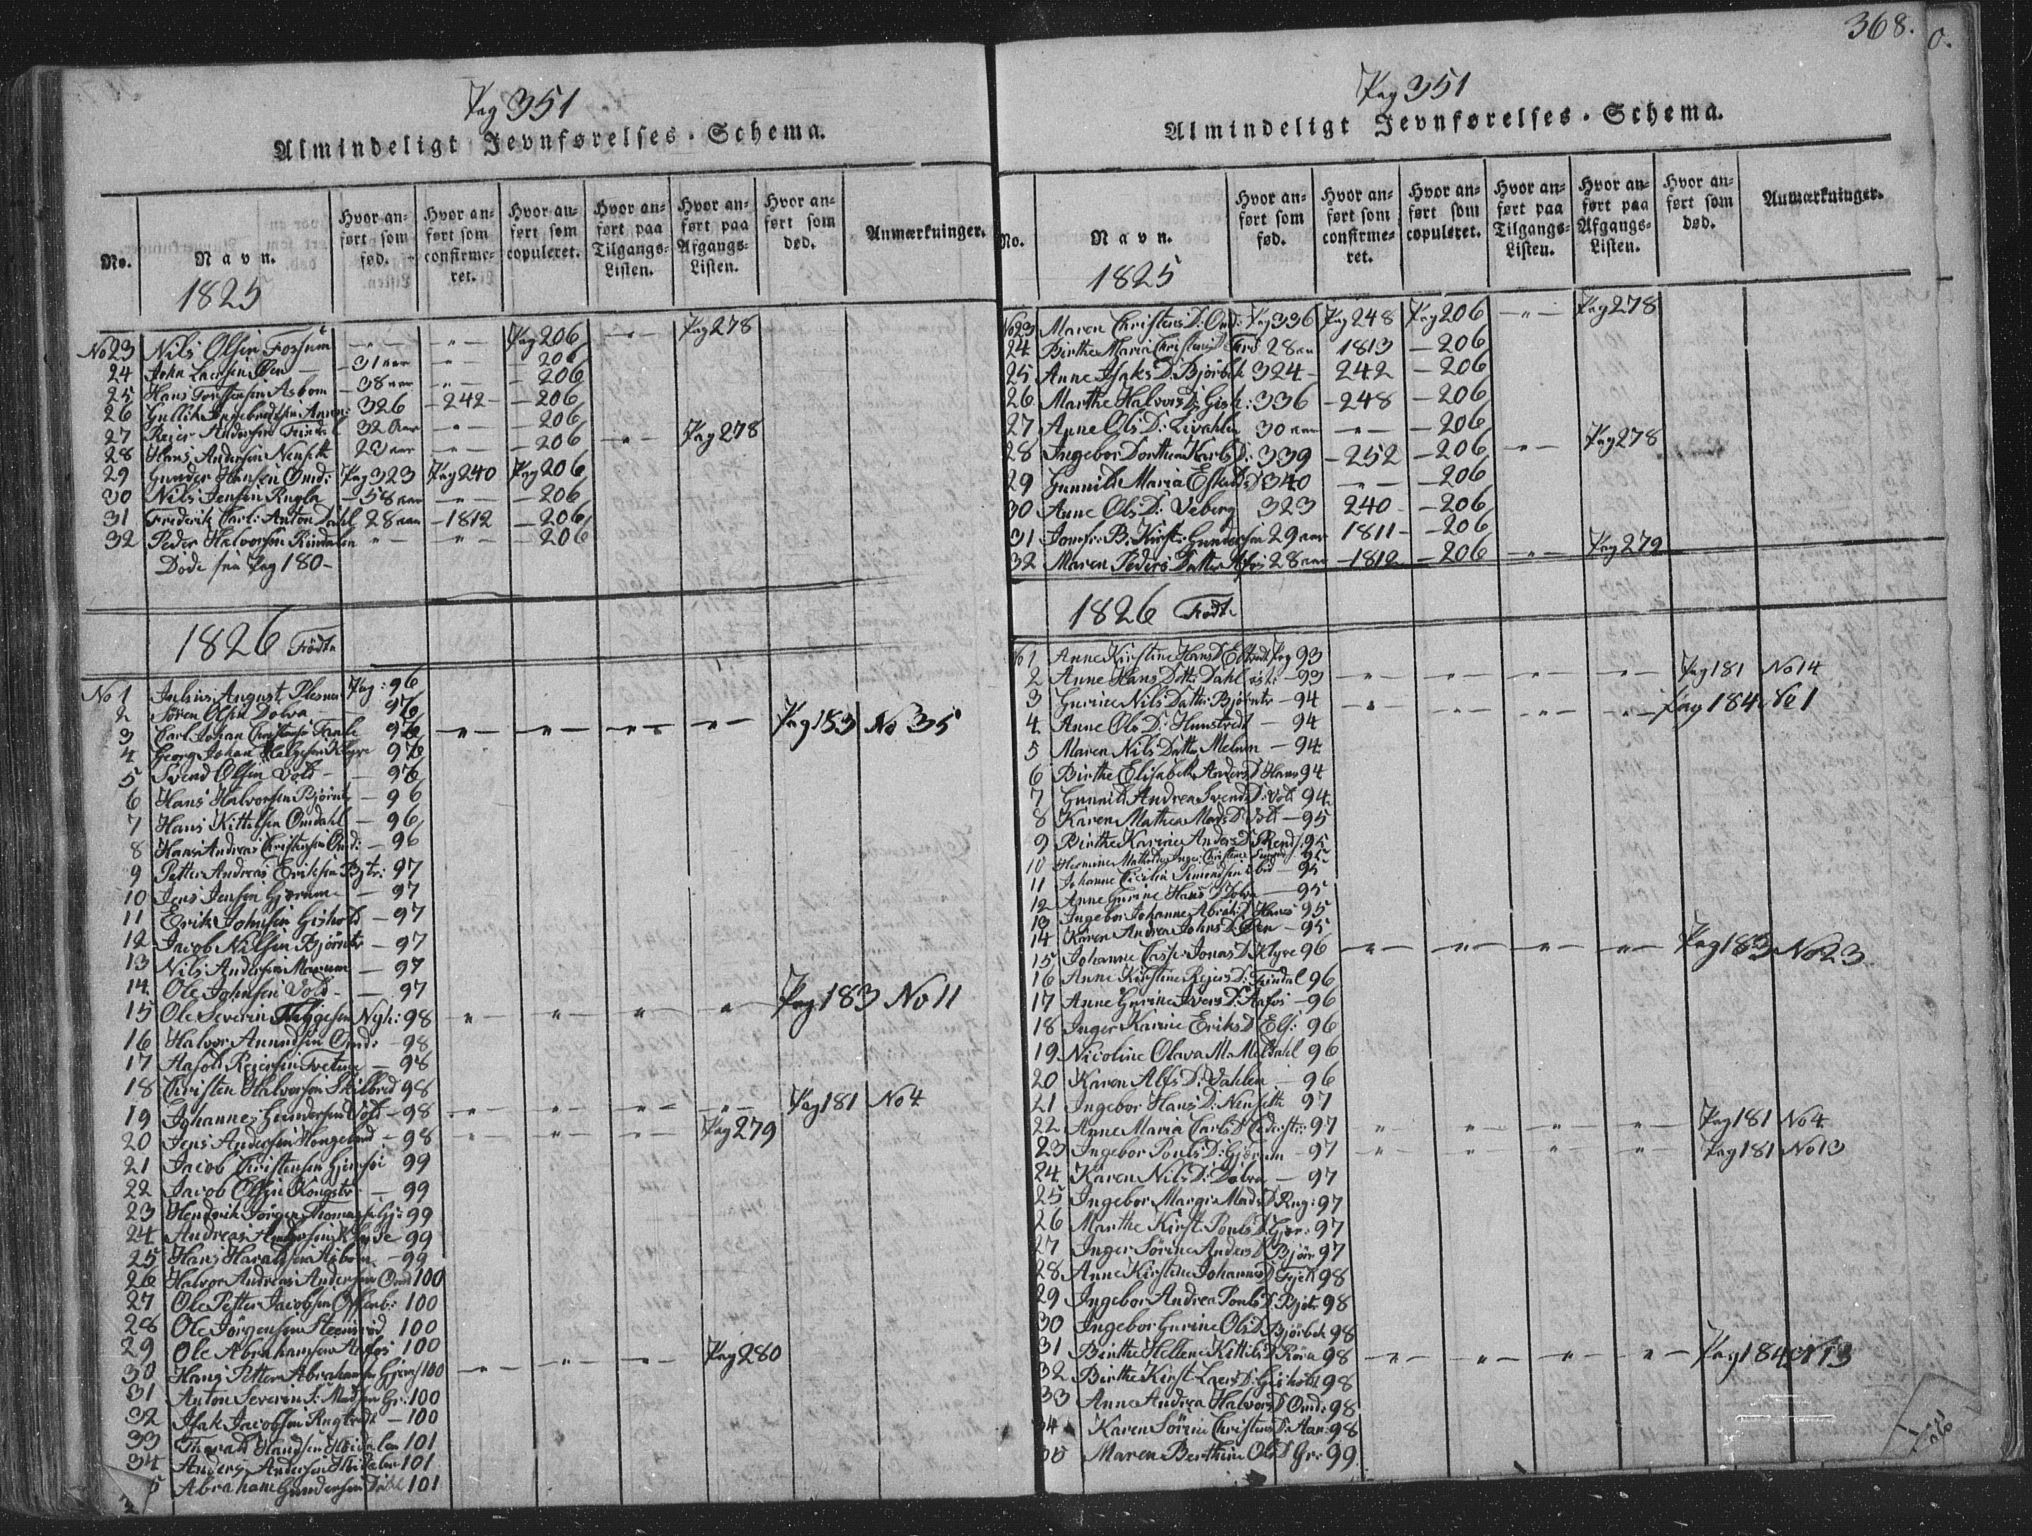 368.
0.
Pag 351
Almindeligt Jevnførelses-Schema.
No. Navn. Hvor anført som fød. Hvor anført som confirmeret. Hvor anført som copuleret. Hvor anført paa Tilgangs-Listen. Hvor anført paa Afgangs-Listen. Hvor anført som død. Anmærkninger.
1825
No 23 Nils Olsen Fossum -"- -"- Pag 206 -"- Pag 278
24 John Larsen Øen - 31 aar -"- - 206
25 Hans Torstensen Asbom - 38 aar -"- - 206
26 Gullik Ingebredtsen 326 - 242 - - 206
27 Reier Andersen Trindal 32 Aar -"- - 206
28 Hans Andersen Nenseth 29 aar -"- - 206 -"- Pag 278
29 Gunder Hansen Omd: Pag 323 Pag 240 Pag 206
30 Nils Jensen Rugla - 58 aar -"- - 206
31 Frederik Carl: Anton Dahl 28 aar - 1812 - 206
32 Peder Halvorsen Rindalen " - " - - 206
Døde see Pag 180 -
1826 Fødte
No 1 Julius August Plesner Pag: 96
2 Søren Olsen Dolva 96
3 Carl Johan 96 -"- -"- -"- -"- Pag 183 No 35
4 Georg Johan Helgesen Klyve 96
5 Svend Olsen Vold - - 96
6 Hans Halvorsen Bjørntv - 96
7 Hans Kittilsen Omdahl - 96
8 Hans Andreas Christensen Omd: - 96
9 Petter Andreas Eriksen Bjtv: 97
10 Jens Jensen Gjerum - 97
11 Erik Johnsen Gisholt - 97
12 Jacob Nilsen Bjørntv - 97
13 Nils Andersen - 97
14 Ole Johnsen Vold - - 97
15 Ole Severin Helgesen Nyh: 98 " - " - " - " - Pag 183 No 11
16 Halvor Amundsen Omd: - 98
17 Reiersen Tveten - 98
18 Christen Halvorsen Skilbred 98
19 Johannes Gundersen Vold - 98 -"- " - " - -"- Pag 181 No 4
20 Jens Andersen Hongeland - 98 " - " - " - Pag 279
21 Jacob Christensen Gjemsøi 99
22 Jacob Olsen Kongstv - 99
23 Hendrik Jørgen Thomasen Gj: 99
24 Andreas Klyve - 99
25 Hans Haraldsen Asbom - 99
26 Halvor Andreas Andersen Omd 100
27 Ole Petter Jacobsen 100
28 Ole Jørgensen Steensrød 100
29 Ole Abrahamsen Aafos 100
30 Hans Petter Abrahamsen Gjem 100 -"- " - " - Pag 280
31 Anton Severin S: Madsen Gr: 100
32 Isak Jacobsen Rugtvedt - 100
33 Hansen Heidalen 101
34 Anders Andersen Heidalen 101
5 Abraham Gundersen Dahl 101
Pag 351
Almindeligt Jevnførelses-Schema.
No. Navn. Hvor anført som fød. Hvor anført som confirmeret. Hvor anført som copuleret. Hvor anført paa Tilgangs-Listen. Hvor anført paa Afgangs-Listen. Hvor anført som død. Anmærkninger.
1825
No 23 Maren Christens D: Omd: Pag 336 Pag 248 Pag 206 -"- Pag 278
24 Birthe Maria Christens D 28 aar 1813 - 206
25 Anne Isaks D: Bjørbek 324 - 242 - 206
26 Marthe Halvors D: Gish: 336 - 248 - 206
27 Anne Ols D: 30 aar -"- - 206
28 Ingebor Dorthea Karls D: 339 - 252 - 206 -"- Pag 278
29 Gunnild Maria D 340 -"- - 206
30 Anne Ols D: Veberg 323 240 - - 206
31 Jomfr: B. Kirst: Gundersen 29 aar 1811 - - 206
32 Maren Peders Datter Aafos 28 aar - 1812 - 206 -"- Pag 279
1826 Fødte
No 1 Anne Kirstine Hans D Pag 93
2 Anne Hans Datt: Dahl - 93 -"- -"- -"- -"- Pag 181 No 14
3 Gurine Nils Datter Bjørntv - 94 -"- -"- -"- -"- Pag 184 No 1
4 Anne Ols D: Humstredt - 94
5 Maren Nils Datter Melum - 94
6 Birthe Elisabeth Anders D Hans 94
7 Gunnild Andrea Svends D: Vold 94
8 Karen Mathea Mads D Vold - 95
9 Birthe Karine Anders D 95
10 Hermine 95
11 Johanne Cicilia Simonsen - 95
12 Anne Gurine Hans D Dolva - 95
13 Ingebor Johanne Abrah D Hans 95
14 Karen Andrea Johns D: Øen - 95
15 Johanne Casp: Jonas D: Klyve 96 -"- " - " - " - Pag 183 No 23
16 Anne Kirstine Reiers D: Trindal 96
17 Anne Gurine Ivers D: Aafos - 96
18 Inger Karine Eriks D Elf: 96
19 Nicoline Olava M: Meldahl 96
20 Karen Alfs D: Dahlen - 96
21 Ingebor Hans D: Nenseth 97
22 Anne Maria Carls D 97 " - " - " - " - Pag 181 No 4
23 Ingebor Pouls D: Gjerum - 97 " - " - " - " - Pag 181 No 13
24 Karen Nils D: Dolva - 97
25 Ingebor Margr: Mads D Rug: 97
26 Marthe Kirst. Pouls D Gjer: 97
27 Inger Sørine Anders D Bjørn 97
28 Anne Kirstine Johannes D 98
29 Ingebor Andrea Pouls D. Bjntv 98
30 Ingebor Gurine Ols D. Bjørbek 98
31 Birthe Hellene Kittils D Røra 98 -"- " - " - " - Pag 184 No 13
32 Birthe Kirst. Lars D: Gisholt 98
33 Anna Andrea Halvors D Omd: 98
34 Karen Sørine Christens D: Aar: 98
35 Maren Berthine Ols D Gr: 99.